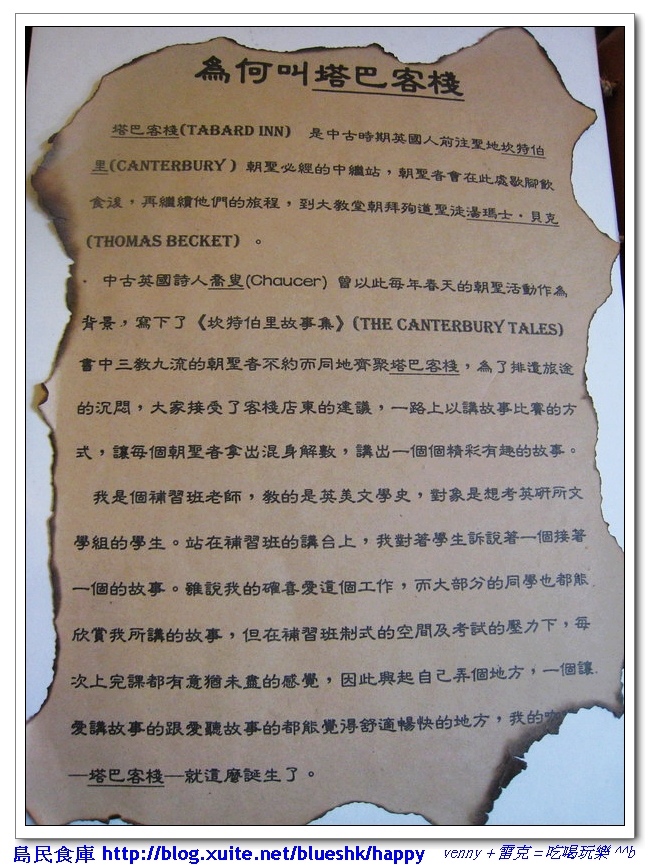 為何叫塔巴客棧
塔巴客棧(TABARD INN) 是中古時期英國人前往聖地坎特伯
里(CANTERBURY) 朝聖必經的中繼站，朝聖者會在此處歇腳飲
食後，再繼續他們的旅程，到大教堂朝拜殉道聖徒湯瑪士．貝克
(THOMAS BECKET) 。
中古英國詩人喬叟(Chaucer) 曾以此每年春天的朝聖活動作為
背景，寫下了《坎特伯里故事集》(THE CANTERBURY TALES)
書中三教九流的朝聖者不約而同地齊聚塔巴客棧，為了排遣旅途
的沉悶，大家接受了客棧店東的建議，一路上以講故事比賽的方
式，讓每個朝聖者拿出混身解數，講出一個個精彩有趣的故事。
我是個補習班老師，教的是英美文學史，對象是想考英研所文
學組的學生。站在補習班的講台上，我對著學生訴說著一個接著
一個的故事。雖說我的確喜愛這個工作，而大部分的同學也都能
欣賞我所講的故事，但在補習班制式的空間及考試的壓力下，每
次上完課都有意猶未盡的感覺，因此興起自己弄個地方，一個讓
愛講故事的跟愛聽故事的都能覺得舒適暢快的地方，我的
—塔巴客棧—就這麼誕生了。
島民食庫 http://blog.xuite.net/blueshk/happy venny＋雷克＝吃喝玩樂^^b